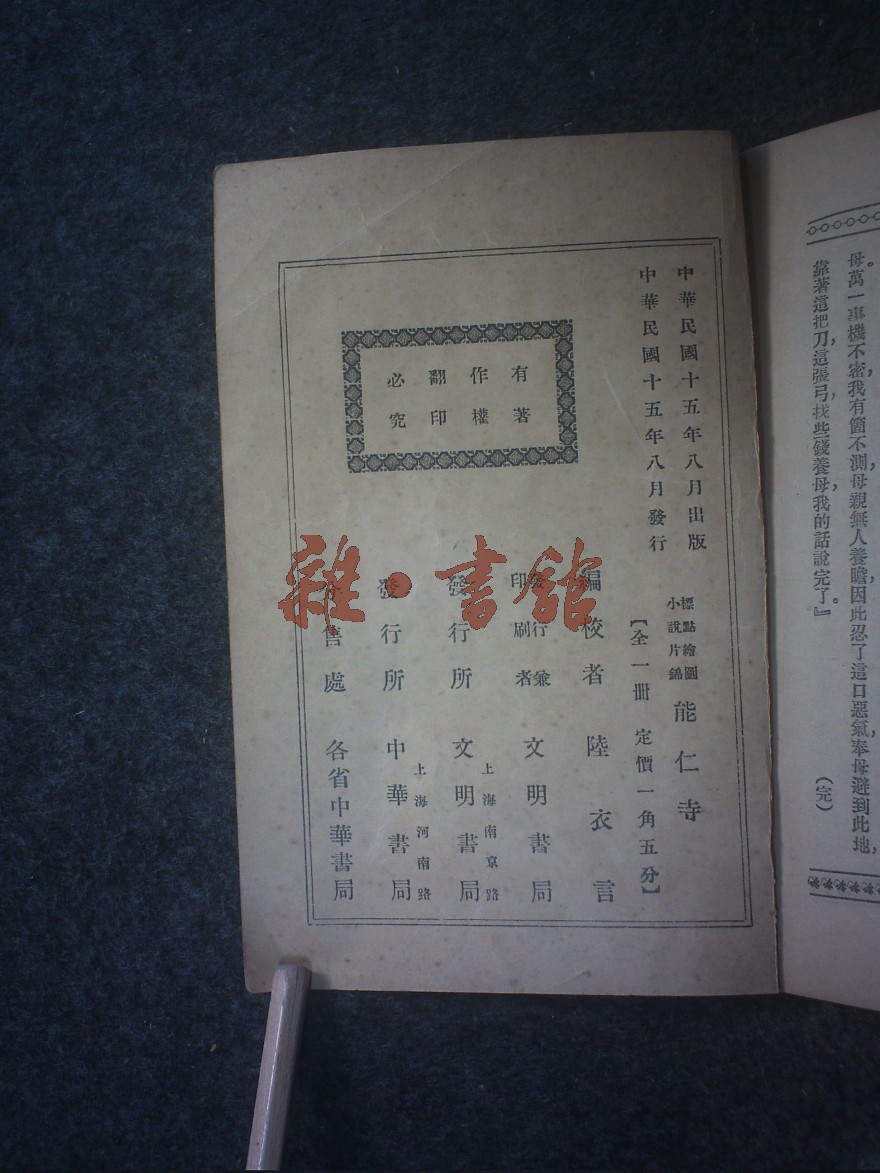 母萬一事機不密，我有箇不測，母親無人養贍，因此忍了這口惡氣，奉母避到此地，
靠著這把刀，這張弓，找些錢養母，我的話說完了。』
（完）
中華民國十五年八月出版
中華民國十五年八月發行
有著
作權
翻印
必究
標點繪圖
小說片錦
能仁寺
【全一冊 定價一角五分】
編校者 陸衣言
發行兼
印刷者
文明書局
上海南京路
發行所 文明書局
上海河南路
發行所 中華書局
售處 各省中華書局
雜·書館